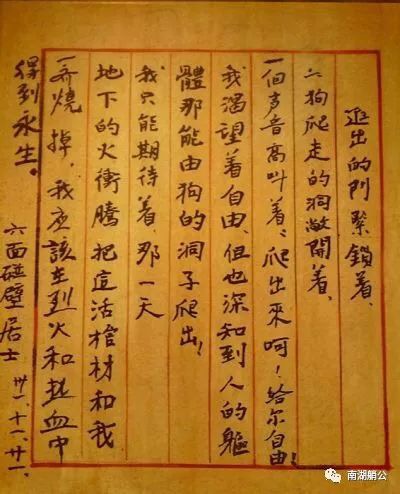 进出的門緊鎖着、
〃狗爬走的洞敞開着、
一個声音高叫着:爬出來呵!給尔自由!
我渴望着自由,但也深知到人的軀
體那能由狗的洞子爬出!
我只能期待着,那一天
地下的火衝騰把這活棺材和我
一齊燒掉,我应該在烈火和热血中
得到永生。
六面碰壁居士 卅一、十一、廿一.
南湖艄公